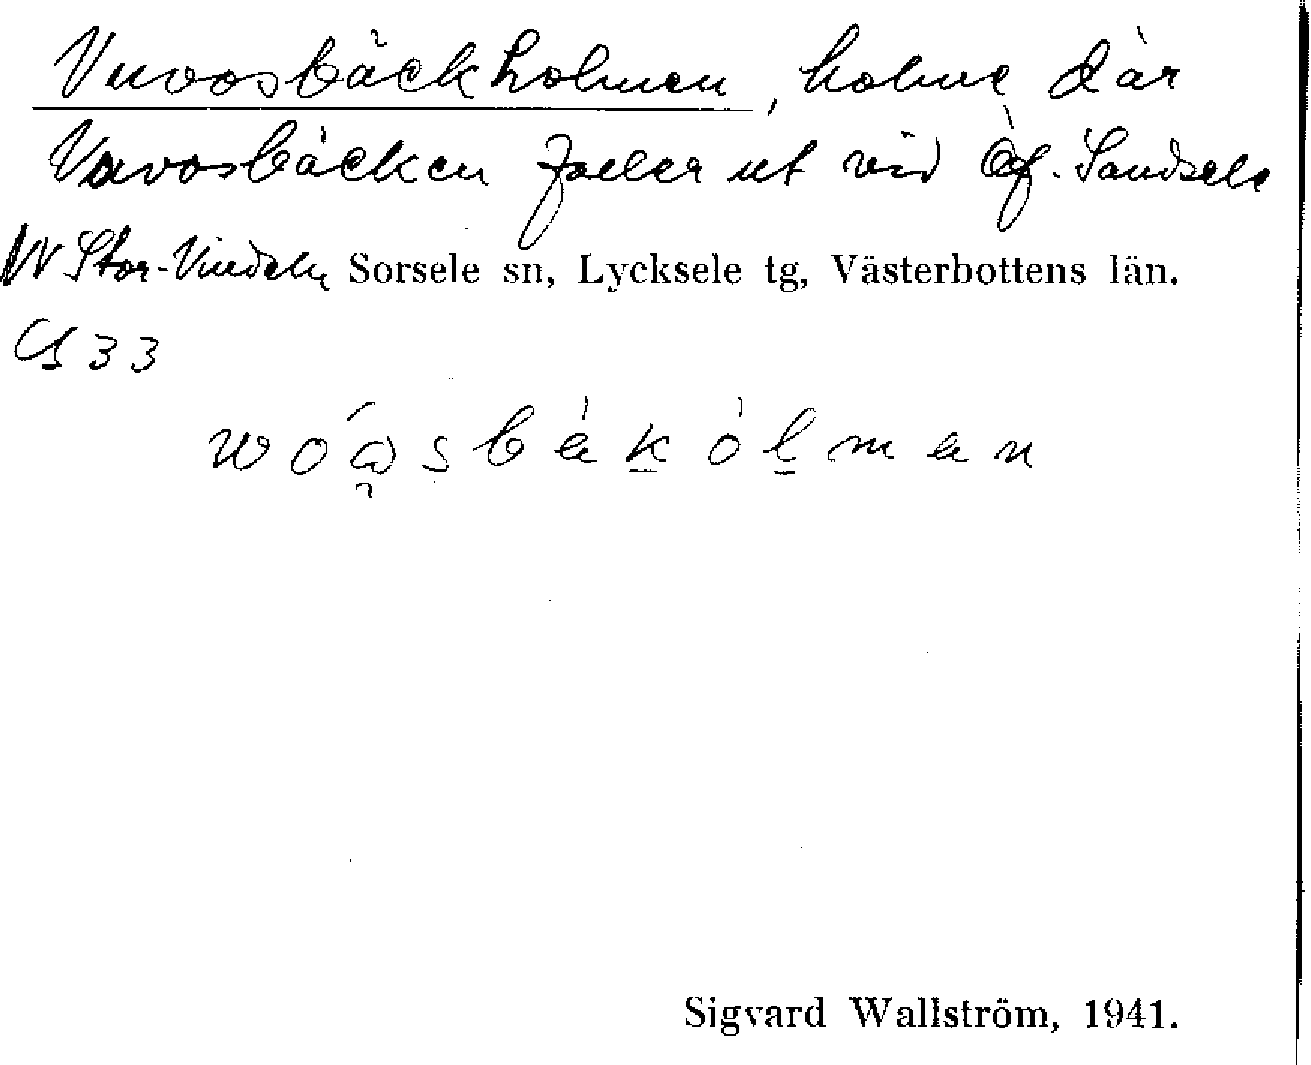 Vuoosbäckholmen, holme där
Vuvosbäcken faller ut vid Öf. Sandsele
W Stor-Vindeln Sorsele sn, Lycksele tg, Västerbottens län.
33
Sigvard Wallström, 1941.